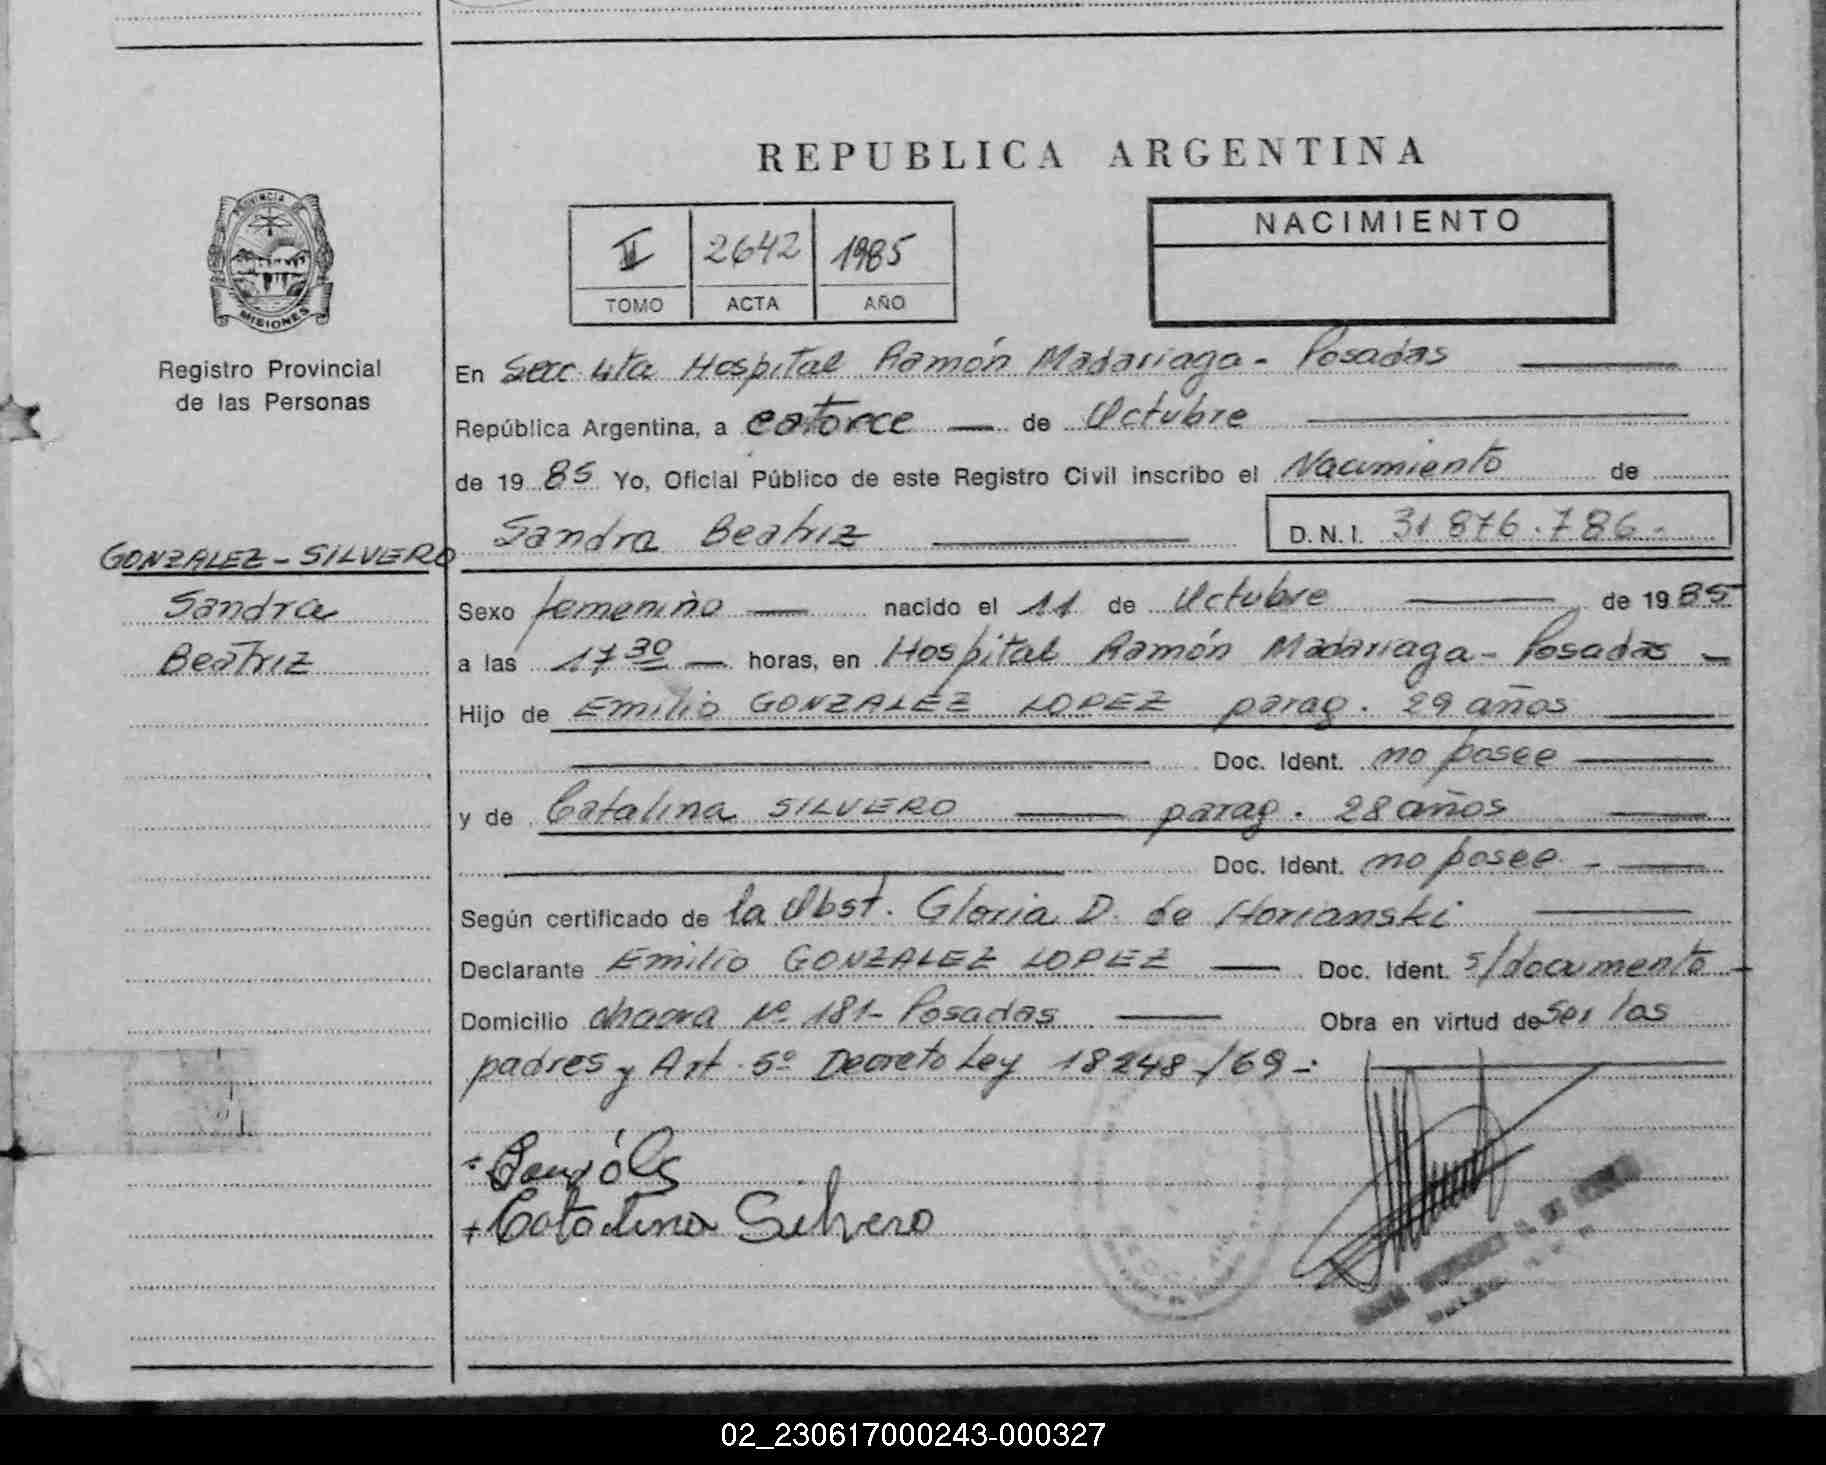 REPUBLICA ARGENTINA
PROVINCIA DE
MISIONES
Registro Provincial
de las Personas
II 2642 1985
TOMO ACTA AÑO
NACIMIENTO
En Secc. 4ta Hospital Ramón Madariaga - Posadas
República Argentina, a catorce de Octubre
de 1985 Yo, Oficial Público de este Registro Civil inscribo el Nacimiento de
Sandra Beatriz D.N.I. 31 876.786.-
GONZALEZ - SILVERO
Sandra
Beatriz
Sexo femenino nacido el 11 de Octubre de 1985
a las 17 30 horas, en Hospital Ramón Madariaga - Posadas -
Hijo de Emilio GONZALEZ LOPEZ parag. 29 años
Doc. Ident. no posee
y de Catalina SILVERO parag. 28 años
Doc. Ident. no posee -
Según certificado de la Obst. Gloria D. de Horianski
Declarante Emilio GONZALEZ LOPEZ Doc. Ident. s/documento
Domicilio chacra Nº 181 - Posadas Obra en virtud de ser los
padres y Art. 5º Decreto Ley 18248/69 -
Catalina Silvero
02_230617000243-000327